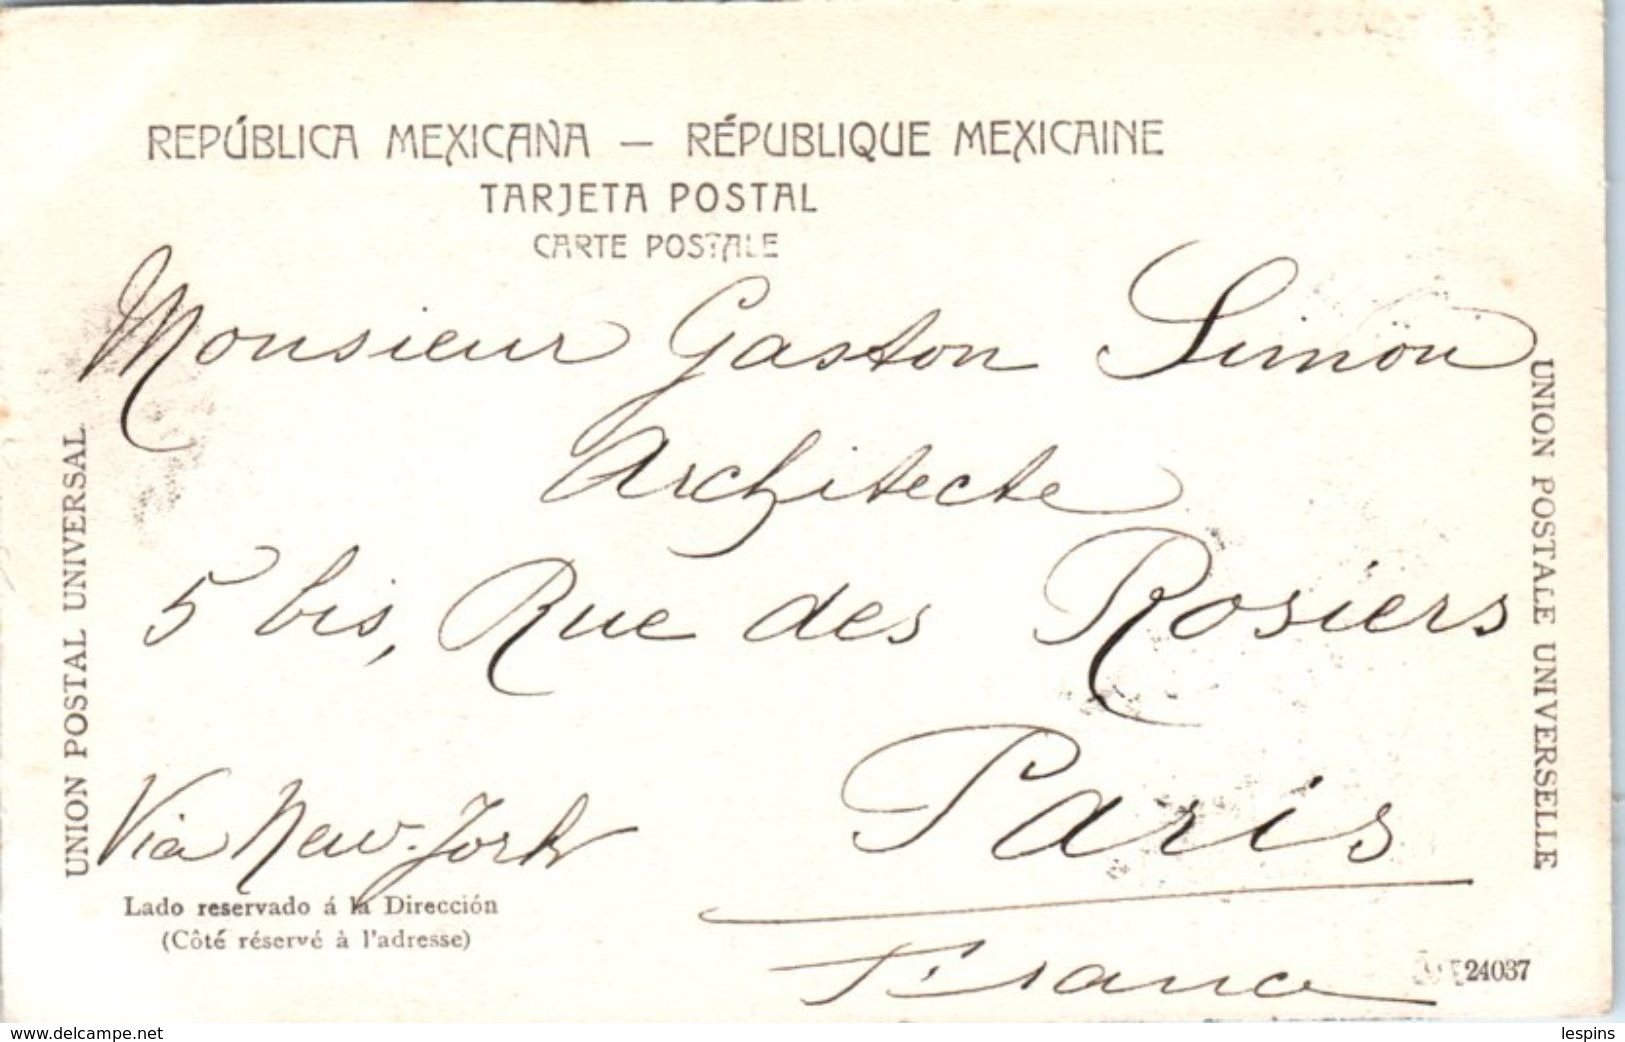 REPÚBLICA MEXICANA — RÉPUBLIQUE MEXICAINE
TARJETA POSTAL
CARTE POSTALE
Monsieur Gaston Simon
Architecte
5 bis, Rue des Rosiers
Paris
France
Via New-York
UNION POSTAL UNIVERSAL
UNION POSTALE UNIVERSELLE
Lado reservado á la Dirección
(Côté réservé à l'adresse)
24037
www.delcampe.com
lespins